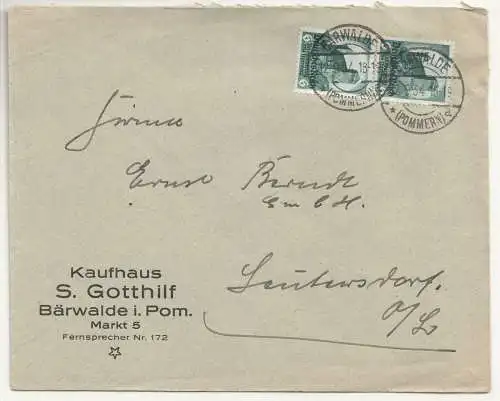 BÄRWALDE
(POMMERN)
BÄRWALDE
(POMMERN)
Firma
Ernst Berndt
GmbH.
Leutersdorf.
O/L
Kaufhaus
S. Gotthilf
Bärwalde i. Pom.
Markt 5
Fernsprecher Nr. 172